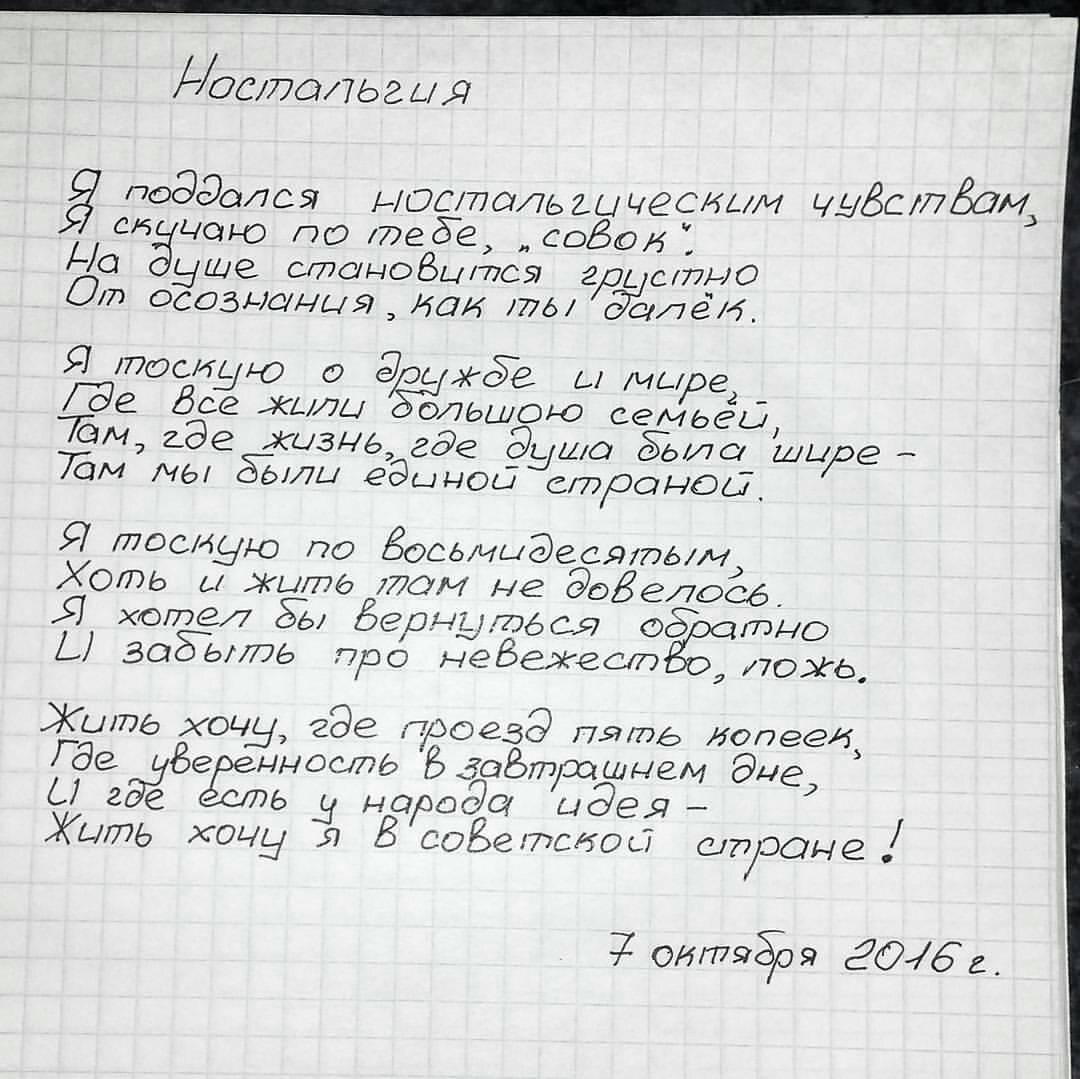 Ностальгия
Я поддался ностальгическим чувствам,
Я скучаю по тебе, „совок“.
На душе становится грустно
От осознания, как ты далёк.
Я тоскую о дружбе и мире,
Где все жили большою семьёй,
Там, где жизнь, где душа была шире –
Там мы были единой страной.
Я тоскую по восьмидесятым,
Хоть и жить там не довелось.
Я хотел бы вернуться обратно
И забыть про невежество, ложь.
Жить хочу, где проезд пять копеек,
Где уверенность в завтрашнем дне,
И где есть у народа идея –
Жить хочу я в советской стране!
7 октября 2016 г.